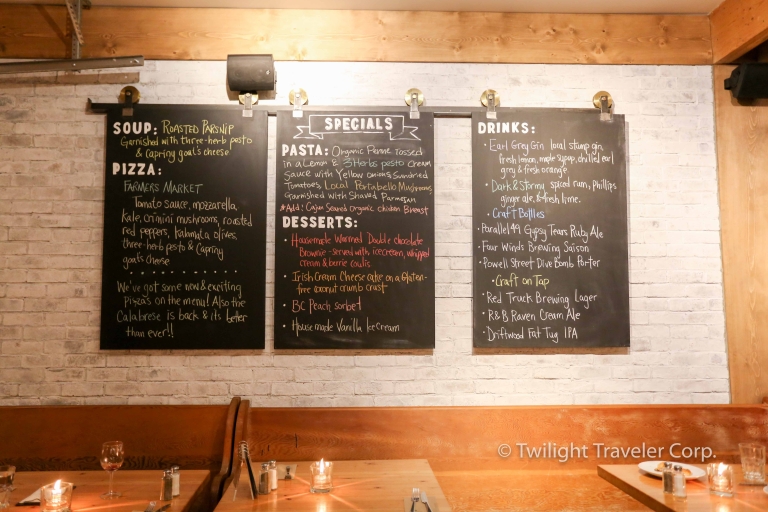 SOUP: ROASTED PARSNIP
Garnished with three-herb pesto
& Capring goat's cheese
PIZZA:
FARMERS MARKET
Tomato Sauce, mozzarella,
kale, crimini mushrooms, roasted
red peppers, kalamata olives,
three-herb pesto & Capring
goat's cheese
We've got some new & exciting
Pizza's on the menu! Also the
Calabrese is back & its better
than ever!!
SPECIALS
PASTA: Organic Penne Tossed
in a Lemon & 3 Herbs pesto Cream
Sauce with Yellow onions, Sundried
Tomatoes, Local Portabello Mushrooms
Garnished with Shaved Parmesan
*Add: Cajun Seared Organic chicken Breast
DESSERTS:
• Housemade Warmed Double chocolate
Brownie - served with icecream, whipped
cream & berrie coulis
• Irish Cream Cheesecake on a Gluten-
free coconut crumb crust
• BC Peach sorbet
• House made Vanilla Ice cream
DRINKS:
• Earl Grey Gin local stump gin,
fresh lemon, maple syrup, chilled earl
grey & fresh orange.
• Dark & Stormy spiced rum, phillips
ginger ale, & fresh lime.
• Craft Bottles
• Parallel 49 Gypsy Tears Ruby Ale
• Four Winds Brewing Saison
• Powell Street Dive Bomb Porter
• Craft on Tap
• Red Truck Brewing Lager
• R&B Raven Cream Ale
• Driftwood Fat Tug IPA
© Twilight Traveler Corp.